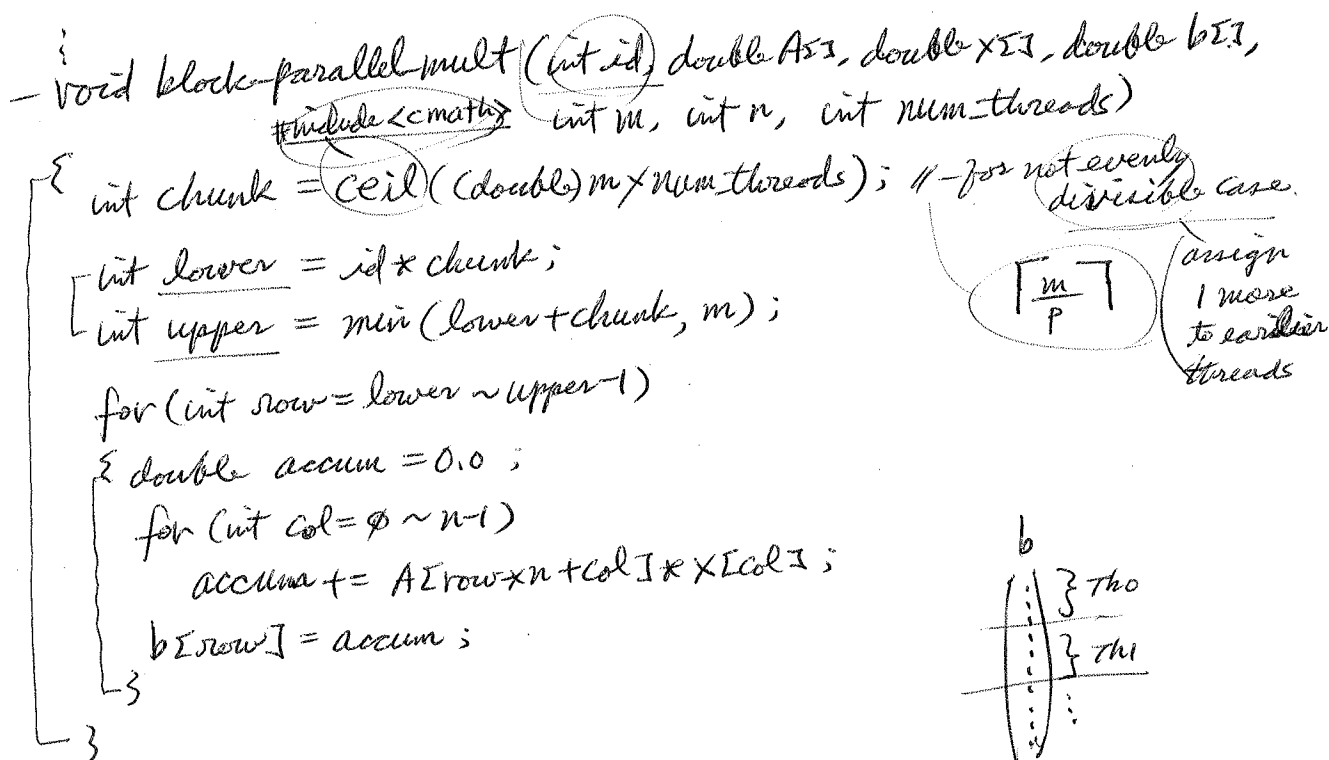 ⋮
– void block-parallel-mult (int id, double A[], double x[], double b[],
#include <cmath> int m, int n, int num_threads)
{
int chunk = ceil((double)m/num_threads); // – for not evenly
divisible case.
⌈m/p⌉
assign
1 more
to earlier
threads
int lower = id*chunk;
int upper = min(lower+chunk, m);
for(int row=lower ~ upper-1)
{ double accum = 0.0 ;
for (int col=ø ~ n-1)
accum += A[row*n+col]* x[col] ;
b[row] = accum ;
}
}
b
} Th0
} Th1
⋮